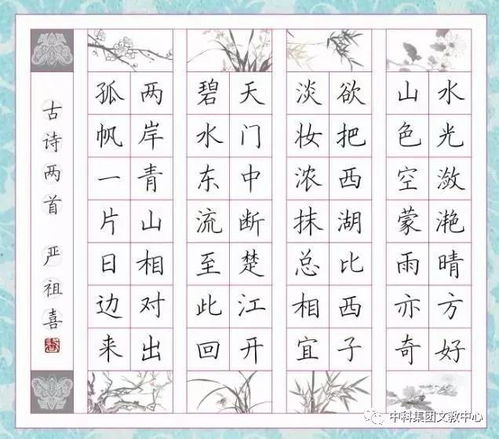 水光潋滟晴方好
山色空蒙雨亦奇
欲把西湖比西子
淡妆浓抹总相宜
天门中断楚江开
碧水东流至此回
两岸青山相对出
孤帆一片日边来
古诗两首 严祖喜
中科集团文教中心